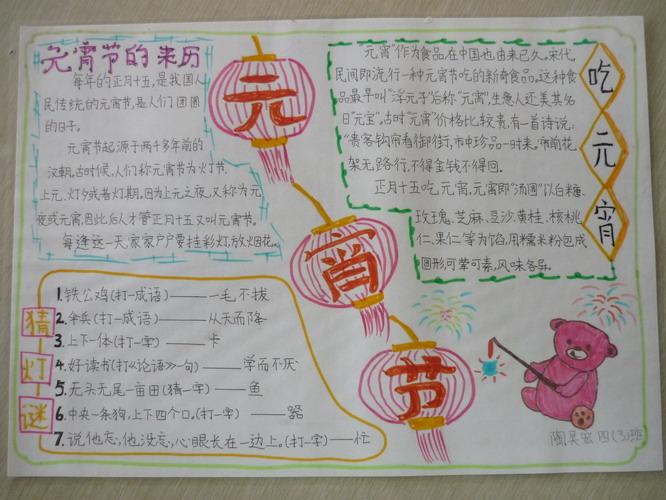 元宵节的来历
每年的正月十五,是我国人
民传统的元宵节,是人们团圆
的日子。
元宵节起源于两千多年前的
汉朝,古时候,人们称元宵节为灯节,
上元、灯夕或者灯期,因为上元之夜,又称为元
夜或元宵,因此后人才管正月十五又叫元宵节。
每逢这一天,家家户户要挂彩灯,放烟花。
元
宵
节
元宵"作为食品,在中国也由来已久。宋代,
民间即流行一种元宵节吃的新奇食品。这种食
品,最早叫"浮元子"后称"元宵",生意人还美其名
曰"元宝"。古时"元宵"价格比较贵,有一首诗说:
"贵客钩帘看御街,市中珍品一时来。帘前花
架无路行,不得金钱不得回。
正月十五吃元宵,元宵即"汤圆"以白糖、
玫瑰、芝麻、豆沙、黄桂、核桃
仁、果仁等为馅,用糯米粉包成
圆形,可荤可素,风味各异。
吃
元
宵
猜
灯
谜
1.铁公鸡(打一成语)——一毛不拔
2.伞兵(打一成语)——从天而降
3.上下一体(打一字)——卡
4.好读书(打《论语》一句)——学而不厌
5.无头无尾一亩田(猜一字)——鱼
6.中央一条狗,上下四个口。(打一字)——器
7.说他忘,他没忘,心眼长在一边上。(打一字)——忙
四(3)班